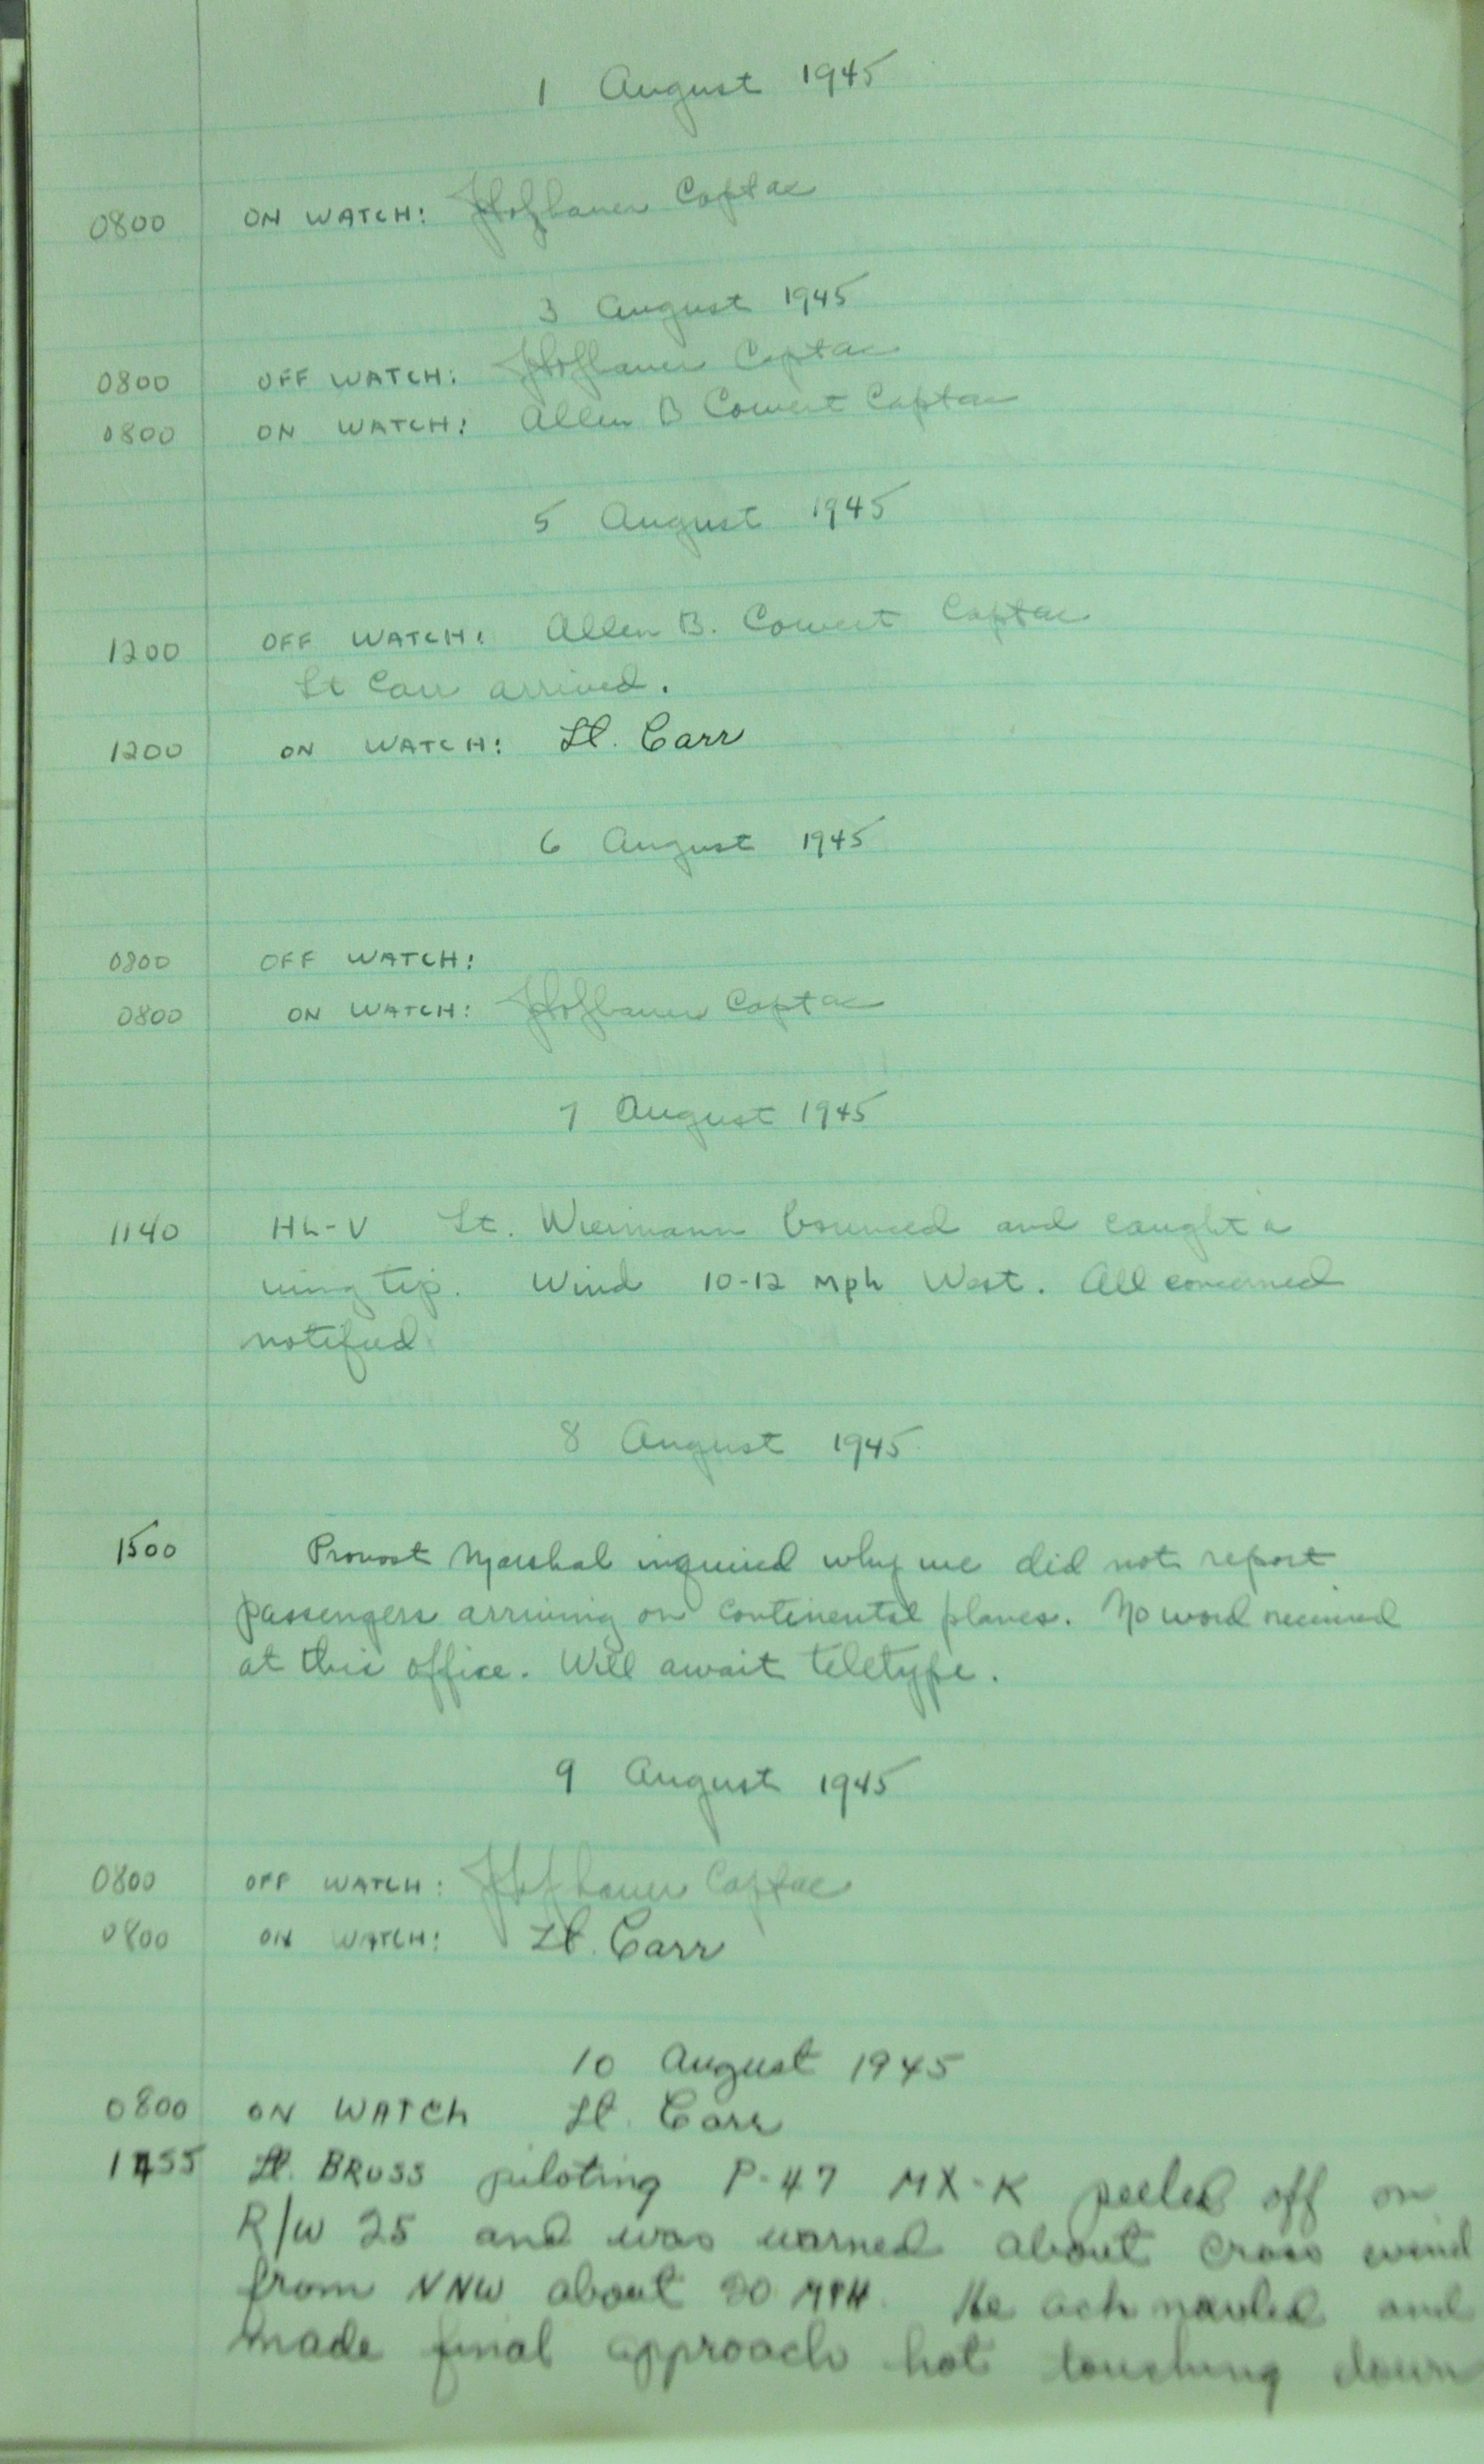 1 August 1945
0800 ON WATCH: JHofbauer Capt ac
3 August 1945
0800 OFF WATCH: JHofbauer Capt ac
0800 ON WATCH: Allen B Cowert Capt ac
5 August 1945
1200 OFF WATCH: Allen B. Cowert Capt ac
Lt Carr arrived.
1200 ON WATCH: Lt. Carr
6 August 1945
0800 OFF WATCH:
0800 ON WATCH: JHofbauer Capt ac
7 August 1945
1140 HL-V Lt. Wiermann bounced and caught a
wing tip. Wind 10-12 mph West. All concerned
notified.
8 August 1945
1500 Provost Marshal inquired why we did not report
passengers arriving on continental planes. No word received
at this office. Will await teletype.
9 August 1945
0800 OFF WATCH: JHofbauer Capt ac
0800 ON WATCH: Lt. Carr
10 August 1945
0800 ON WATCH Lt. Carr
1455 Lt. BRUSS piloting P-47 MX-K peeled off on
R/W 25 and was warned about cross wind
from NNW about 20 MPH. He and
made final approach hot touching down